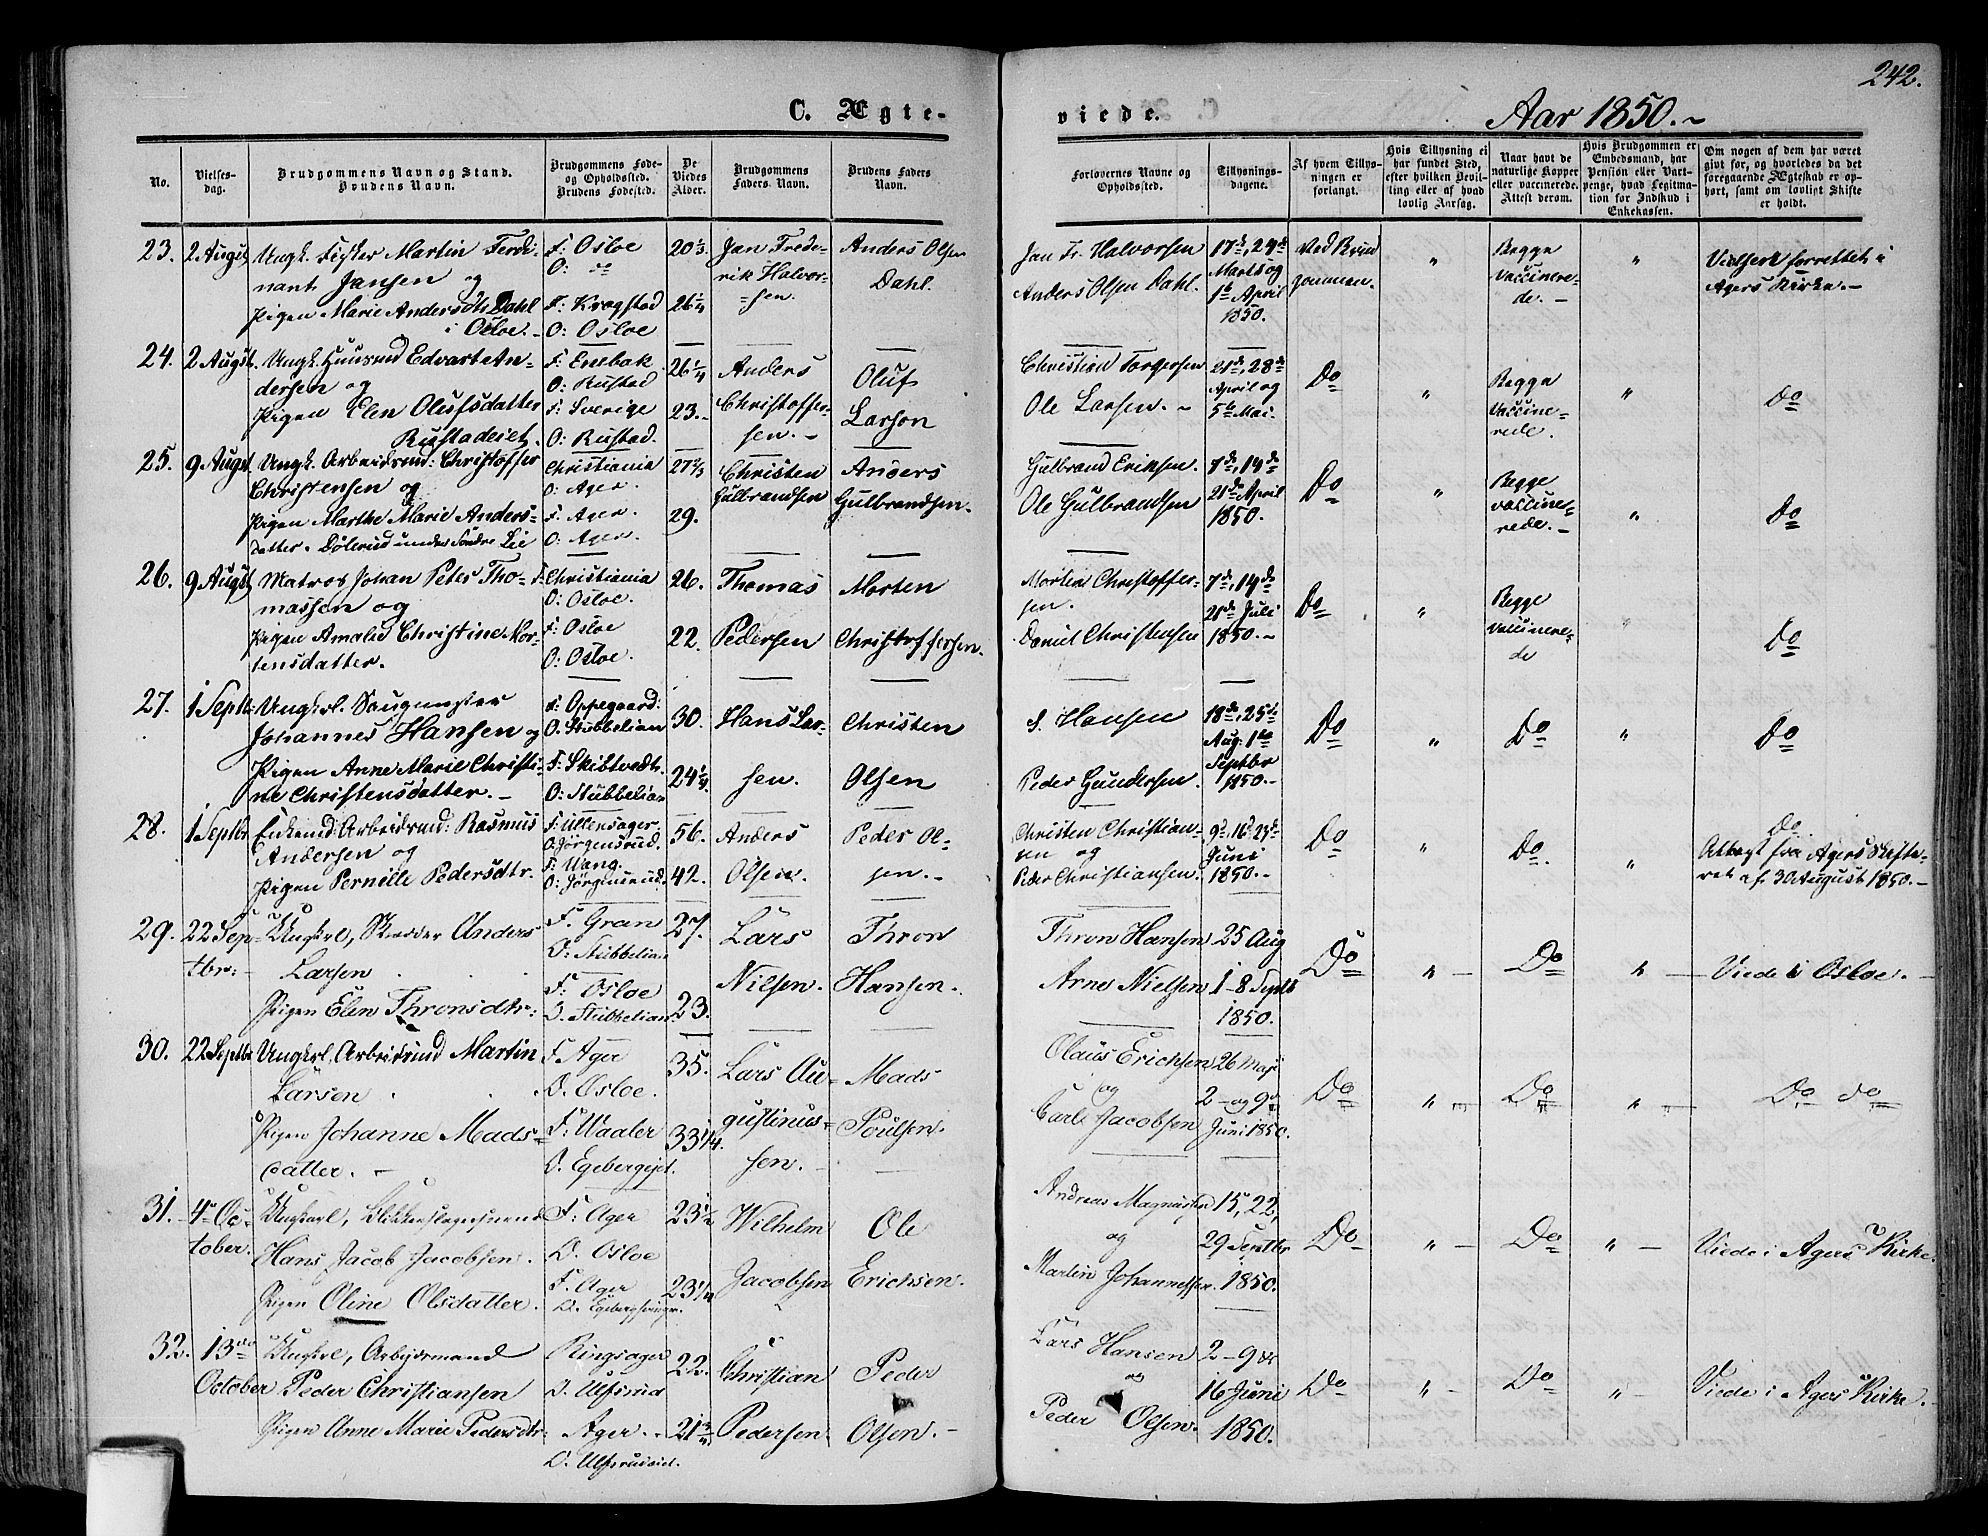 242.
C. Ægte-
viede.
Aar 1850.
No.
Vielses-
dag.
Brudgommens Navn og Stand.
Brudens Navn.
Brudgommens Føde-
og Opholdssted.
Brudens Fødested.
De
Viedes
Alder.
Brudgommens
Faders Navn.
Brudens Faders
Navn.
Forlovernes Navne og
Opholdssted.
Tillysnings-
dagene.
Af hvem Tillys-
ningen er
forlangt.
Hvis Tillysning ei
har fundet Sted,
efter hvilken Bevil-
ling eller af hvad
lovlig Aarsag.
Naar havt de
naturlige Kopper
eller vaccinerede.
Attest derom.
Hvis Brudgommen er
Embedsmand, har
Pension eller Vart-
penge, hvad Legitma-
tion for Indskud i
Enkekassen.
Om nogen af dem har været
gift før, og hvorledes da det
foregaaende Ægteskab er op-
hørt, samt om lovligt Skifte
er holdt.
23. 2 August
Ungk. Fisker Martin Ferdi-
nant Jansen og
Pigen Marie Andersdtr Dahl
i Osloe.
F: Osloe
O: do
F. Krogstad
O: Osloe
20 1/3
26 1/4
Jan Frede-
rik Halvor-
sen.
Anders Olsen
Dahl.
Jan Fr. Halvorsen
Anders Olsen Dahl.
17de, 24de
Marts og
1te April
1850.
Ved Brud
gommen.
"
Begge
vaccinere-
de. -
"
Vielsen forrettet i
Agers Kirke. -
24. 2 August.
Ungk. Huusmd Edvart An-
dersen og
Pigen Elen Olufsdatter
Rustadeiet.
F: Enebak
O: Rustad
F: Sverige
O: Rustad.
26 1/4
23.
Anders
Christoffer-
sen. -
Oluf
Larson
Christian Torgersen
Ole Larsen. -
21de, 28de
April og
5te Mai.
Do
"
Begge
Vaccine-
rede.
"
Do
25. 9 August.
Ungk. Arbeidsmd: Christoffer
Christensen og
Pigen Marthe Marie Anders-
datter. Dølerud under Søndre Lie
Christiania
O: Ager.
F: Ager.
O: Ager.
27 1/3
29.
Christen
Gulbrandsen
Anders
Gulbrandsen.
Gulbrand Eriksen.
Ole Gulbrandsen
7de, 14de
21de April
1850.
Do
"
Begge
vaccine-
rede. -
"
Do
26. 9 August
Matros Johan Peter Tho-
massen og
Pigen Amalie Christine Mor-
tensdatter.
F: Christiania
O: Osloe.
F: Osloe
O: Osloe.
26.
22.
Thomas
Pedersen
Morten
Christoffersen.
Morten Christoffer-
sen.
Daniel Christensen
7de, 14de
21de Juli
1850. -
Do
"
Begge
vaccinere-
de
"
Do
27. 1 Septbr
Ungkrl. Saugmester
Johannes Hansen og
Pigen Anne Marie Christi-
ne Christensdatter. -
F: Oppegaard:
O: Stubbelian
F: Skibtvedt.
O: Stubbelian
30.
24 1/4
Hans Lar-
sen.
Christen
Olsen
S. Hansen
Peder Gundersen
18de, 25de
Aug: 1te
Septbr
1850. -
Do
"
Do
"
Do
28. 1 Septbr
Enkemd: Arbeidsmd: Rasmus
Andersen og
Pigen Pernille Pedersdtr.
F: Ullensager.
O: Jørgensrud.
F: Vang.
O: Jørgensrud.
56.
42.
Anders
Olsen.
Peder Ol-
sen. -
Christen Christian-
sen og
Peder Christiansen.
9de, 16de 23de
Juni
1850. -
Do
"
Do.
"
Do
Attest fra Agers Skifte-
ret af 30 August 1850. -
29. 22 Sep-
tbr:
Ungkrl, Skrædder Anders
Larsen
Pigen Elen Thronsdtr:
F. Gran
O: Stubbelian
F: Osloe
O. Stubbelian
27.
23.
Lars
Nilsen.
Thron
Hansen.
Thron Hansen
Arne Nielsen
25 Aug
1 - 8 Septb
1850.
Do
"
Do
"
Viede i Osloe. -
30. 22 Septbr
Ungkrl. Arbeidsmd Martin
Larsen
Pigen Johanne Mads-
datter. -
F. Ager
O. Osloe.
F: Vaaler
O. Egebergejet.
35.
33 1/4.
Lars Au-
gustinus-
sen.
Mads
Poulsen.
Olaus Erichsen
og
Carl Jacobsen
26 Maji
2 - og 9de
Juni 1850.
Do
"
Do
"
Do do
31. 4de Oc-
tober.
Ungkarl, Blikkenslagersvend
Hans Jacob Jacobsen.
Pigen Oline Olsdatter.
F: Ager
O. Osloe
F. Ager
23 1/2
23 1/4
Wilhelm
Jacobsen
Ole
Erichsen.
Andreas Magnussen
og
Martin Johannessen.
15, 22,
29 Septbr
1850.
Do
"
Do
"
Viede i Agers Kirke.
32. 13de
October
Ungkrl, Arbejdsmand
Peder Christiansen
Pigen Anne Marie Pedersdtr
Ringsager
O. Ulfsrud
Ager.
O. Ulfsrudeiet.
22.
21 3/4
Christian
Pedersen
Peder
Olsen. -
Lars Hansen
og
Peder Olsen.
2 - 9de
16 Juni
1850.
Do
"
Do
"
Viede i Agers Kirke. -